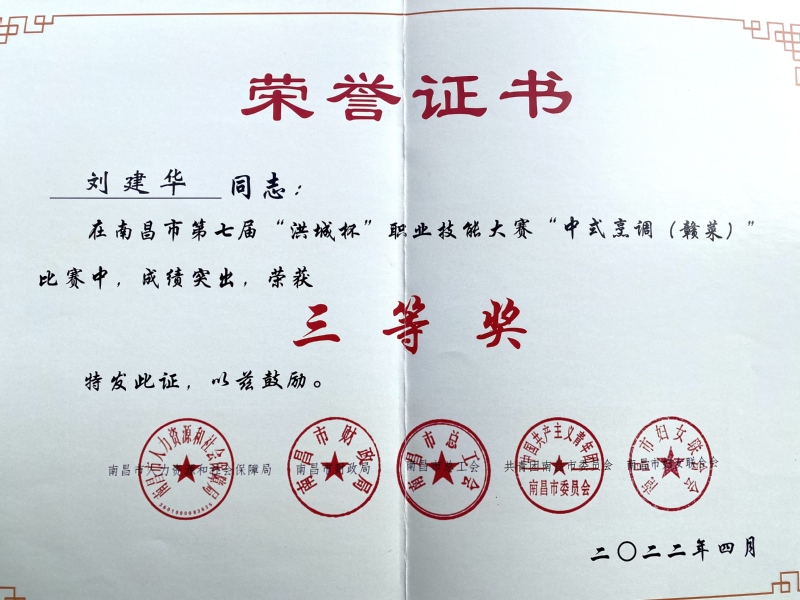 荣誉证书
刘建华 同志：
在南昌市第七届“洪城杯”职业技能大赛“中式烹调（赣菜）”
比赛中，成绩突出，荣获
三等奖
特发此证，以兹鼓励。
南昌市人力资源和社会保障局 南昌市财政局 南昌市总工会 共青团南昌市委员会 南昌市妇女联合会
南昌市人力资源和社会保障局
南昌市财政局
南昌市总工会
中国共产主义青年团
南昌市委员会
南昌市妇女联合会
二〇二二年四月